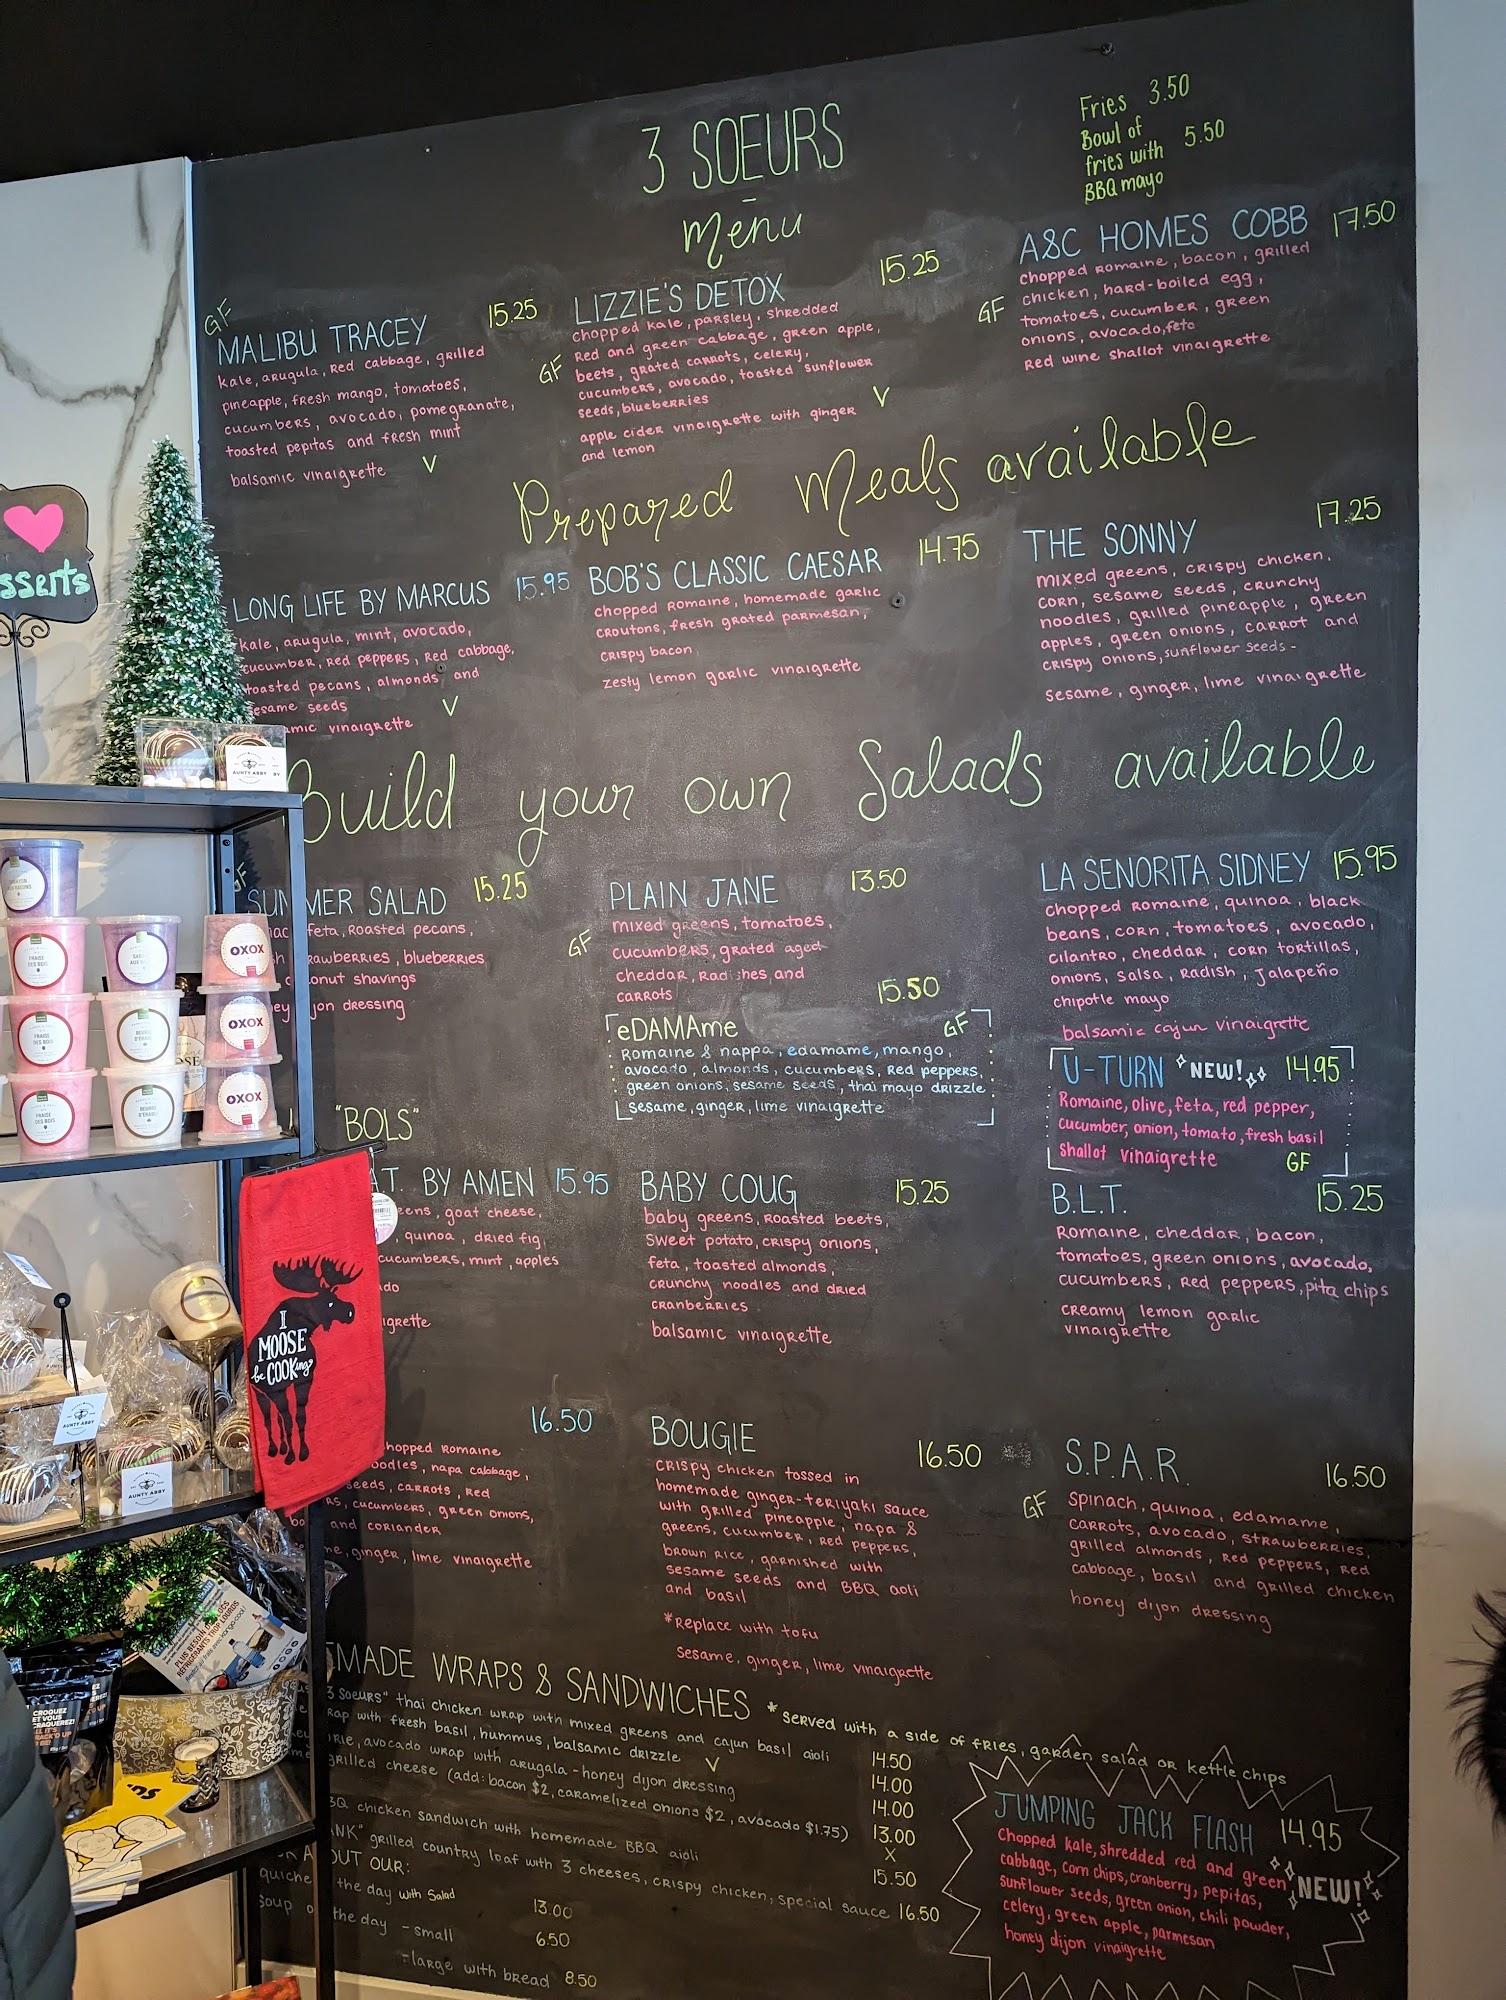 3 SOEURS
menu
Fries 3.50
Bowl of
fries with 5.50
BBQ mayo
GF
MALIBU TRACEY 15.25
kale, arugula, red cabbage, grilled
pineapple, fresh mango, tomatoes,
cucumbers, avocado, pomegranate,
toasted pepitas and fresh mint
balsamic vinaigrette V
LIZZIE'S DETOX 15.25
GF
chopped kale, parsley, shredded
red and green cabbage, green apple,
beets, grated carrots, celery,
cucumbers, avocado, toasted sunflower
seeds, blueberries V
apple cider vinaigrette with ginger
and lemon
A&C HOMES COBB 17.50
GF
chopped romaine, bacon, grilled
chicken, hard-boiled egg,
tomatoes, cucumber, green
onions, avocado, feta
red wine shallot vinaigrette
Prepared Meals available
LONG LIFE BY MARCUS 15.95
kale, arugula, mint, avocado,
cucumber, red peppers, red cabbage,
toasted pecans, almonds and
sesame seeds V
amic vinaigrette
BOB'S CLASSIC CAESAR 14.75
chopped romaine, homemade garlic
croutons, fresh grated parmesan,
crispy bacon
zesty lemon garlic vinaigrette
THE SONNY 17.25
mixed greens, crispy chicken,
corn, sesame seeds, crunchy
noodles, grilled pineapple, green
apples, green onions, carrot and
crispy onions, sunflower seeds -
sesame, ginger, lime vinaigrette
Build your own Salads available
GF
SUMMER SALAD 15.25
feta, roasted pecans,
rawberries, blueberries
onut shavings
jon dressing
PLAIN JANE 13.50
GF
mixed greens, tomatoes,
cucumbers, grated aged
cheddar, radishes, and
carrots
LA SENORITA SIDNEY 15.95
chopped romaine, quinoa, black
beans, corn, tomatoes, avocado,
cilantro, cheddar, corn tortillas,
onions, salsa, radish, jalapeño
chipotle mayo
balsamic cajun vinaigrette
15.50
eDAMAme GF
Romaine & nappa, edamame, mango,
avocado, almonds, cucumbers, red peppers,
green onions, sesame seeds, thai mayo drizzle
sesame, ginger, lime vinaigrette
U-TURN NEW! 14.95
Romaine, olive, feta, red pepper,
cucumber, onion, tomato, fresh basil
shallot vinaigrette GF
"BOLS"
AT. BY AMEN 15.95
eens, goat cheese,
quinoa, dried fig,
cucumbers, mint, apples
ado
igrette
BABY COUG 15.25
baby greens, roasted beets,
sweet potato, crispy onions,
feta, toasted almonds,
crunchy noodles and dried
cranberries
balsamic vinaigrette
B.L.T. 15.25
Romaine, cheddar, bacon,
tomatoes, green onions, avocado,
cucumbers, red peppers, pita chips
creamy lemon garlic
vinaigrette
16.50
hopped romaine
oodles, napa cabbage,
seeds, carrots, red
rs, cucumbers, green onions,
and coriander
me, ginger, lime vinaigrette
BOUGIE 16.50
crispy chicken tossed in
homemade ginger-teriyaki sauce
with grilled pineapple, napa &
greens, cucumber, red peppers,
brown rice, garnished with
sesame seeds and BBQ aoli
and basil
*Replace with tofu
sesame, ginger, lime vinaigrette
S.P.A.R. 16.50
GF
spinach, quinoa, edamame,
carrots, avocado, strawberries,
grilled almonds, red peppers, red
cabbage, basil and grilled chicken
honey dijon dressing
EMADE WRAPS & SANDWICHES *served with a side of fries, garden salad or kettle chips
3 SOEURS" thai chicken wrap with mixed greens and cajun basil aioli 14.50
rap with fresh basil, hummus, balsamic drizzle V 14.00
RIE, avocado wrap with arugala - honey dijon dressing 14.00
grilled cheese (add: bacon $2, caramelized onions $2, avocado $1.75) 13.00
X
BQ chicken sandwich with homemade BBQ aioli 15.50
ANK" grilled country loaf with 3 cheeses, crispy chicken, special sauce 16.50
OUT OUR:
quiche the day with salad 13.00
soup of the day - small 6.50
- large with bread 8.50
JUMPING JACK FLASH 14.95
Chopped kale, shredded red and green
cabbage, corn chips, cranberry, pepitas, NEW!
sunflower seeds, green onion, chili powder,
celery, green apple, parmesan
honey dijon vinaigrette
sserts
AUNTY ABBY
BY
FRAISE
DES BOIS
OXOX
FRAISE
DES BOIS
BEURRE
D'ÉRABLE
OXOX
FRAISE
DES BOIS
BEURRE
D'ÉRABLE
OXOX
I
MOOSE
be COOKing?
AUNTY ABBY
AUNTY ABBY
PLUS BESOIN DE GROS
RÉFRIGÉRANTS TROP LOURDS
CROQUEZ